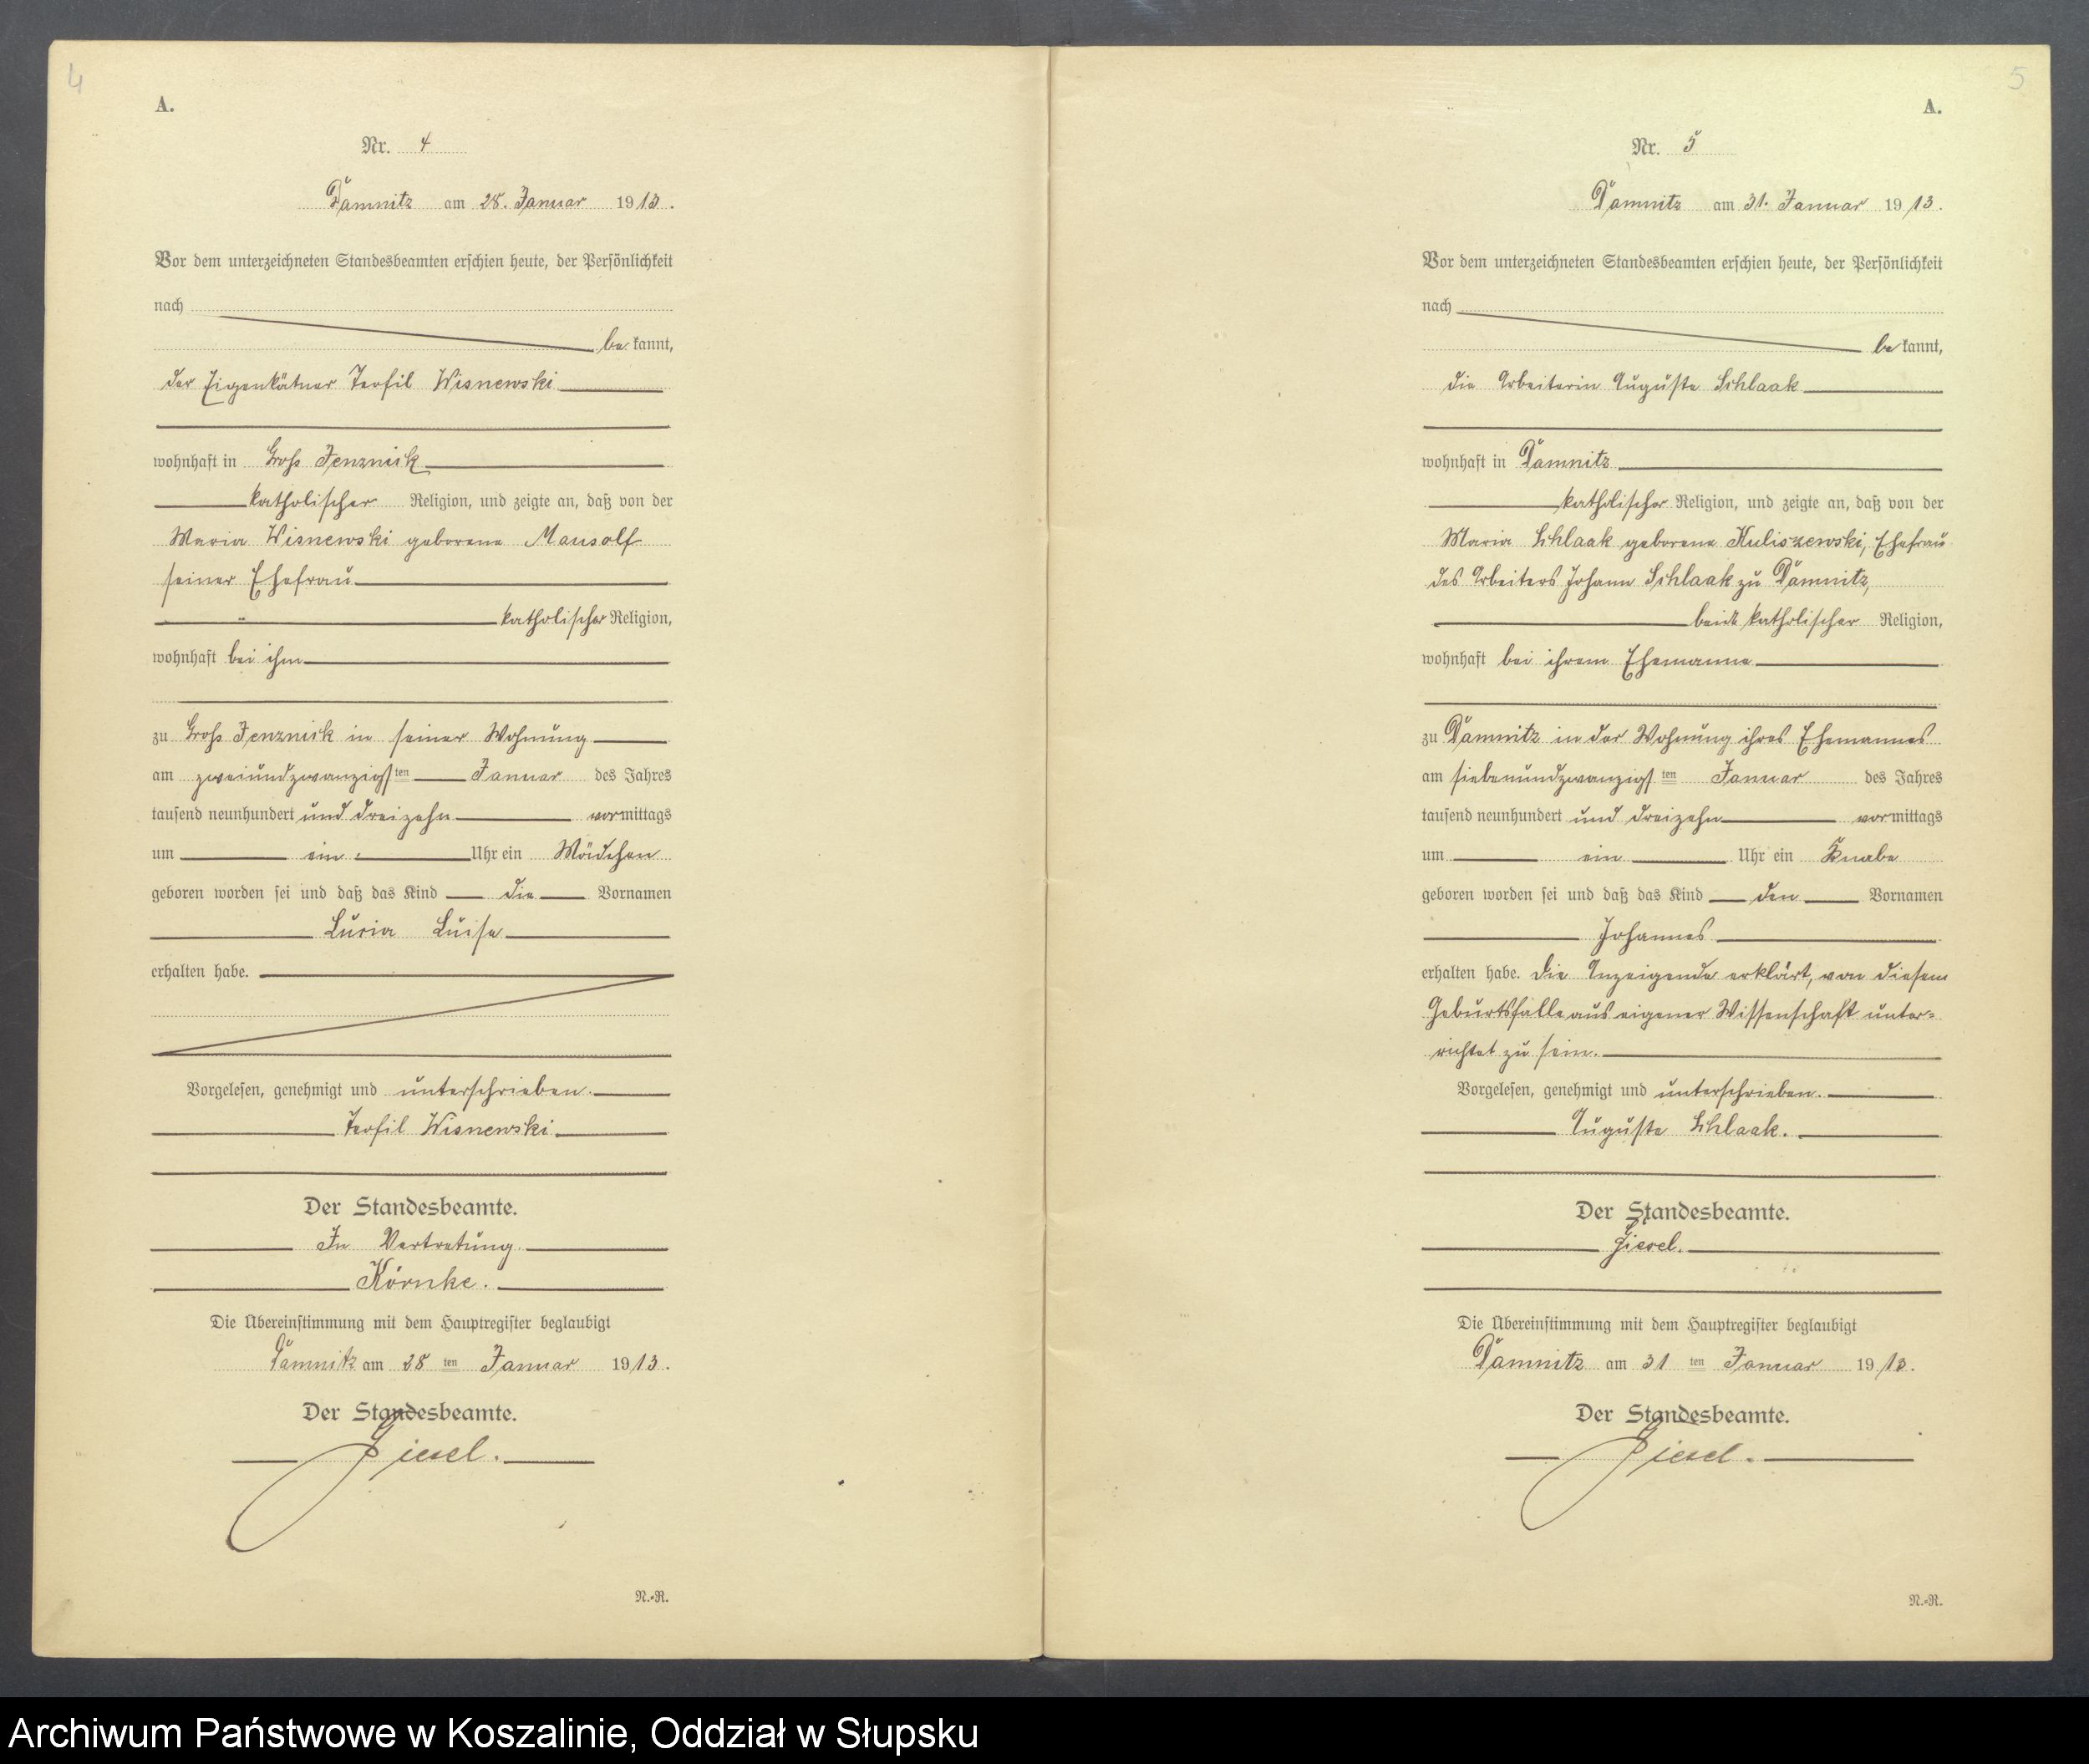 4
A.
Nr. 4
Damnitz am 28. Januar 1913.
Vor dem unterzeichneten Standesbeamten erschien heute, der Persönlichkeit
nach
be kannt,
der Eigenkätner Teofil Wisnewski
wohnhaft in Groß Jenznick
katholischer Religion, und zeigte an, daß von der
Maria Wisnewski geborene Mausolf
seiner Ehefrau
katholischer Religion,
wohnhaft bei ihm
zu Groß Jenznick in seiner Wohnung
am zweiundzwanzigsten Januar des Jahres
tausend neunhundert und dreizehn vormittags
um ein Uhr ein Mädchen
geboren worden sei und daß das Kind die Vornamen
Lucia Luise
erhalten habe.
Vorgelesen, genehmigt und unterschrieben.
Teofil Wisnewski
Der Standesbeamte.
In Vertretung
Körnke.
Die Übereinstimmung mit dem Hauptregister beglaubigt
Damnitz am 28 ten Januar 1913.
Der Standesbeamte.
Giesel.
N.-R.
5
A.
Nr. 5
Damnitz am 31. Januar 1913.
Vor dem unterzeichneten Standesbeamten erschien heute, der Persönlichkeit
nach
be kannt,
die Arbeiterin Auguste Schlaak
wohnhaft in Damnitz
katholischer Religion, und zeigte an, daß von der
Maria Schlaak geborene Kuliszewski, Ehefrau
des Arbeiters Johann Schlaak zu Damnitz,
beide katholischer Religion,
wohnhaft bei ihrem Ehemanne
zu Damnitz in der Wohnung ihres Ehemannes
am siebenundzwanzigsten Januar des Jahres
tausend neunhundert und dreizehn vormittags
um ein Uhr ein Knabe
geboren worden sei und daß das Kind den Vornamen
Johannes
erhalten habe. Die Anzeigende erklärt, von diesem
Geburtsfalle aus eigener Wissenschaft unter-
richtet zu sein.
Vorgelesen, genehmigt und unterschrieben.
Auguste Schlaak.
Der Standesbeamte.
Giesel.
Die Übereinstimmung mit dem Hauptregister beglaubigt
Damnitz am 31 ten Januar 1913.
Der Standesbeamte.
Giesel.
N.-R.
Archiwum Państwowe w Koszalinie, Oddział w Słupsku